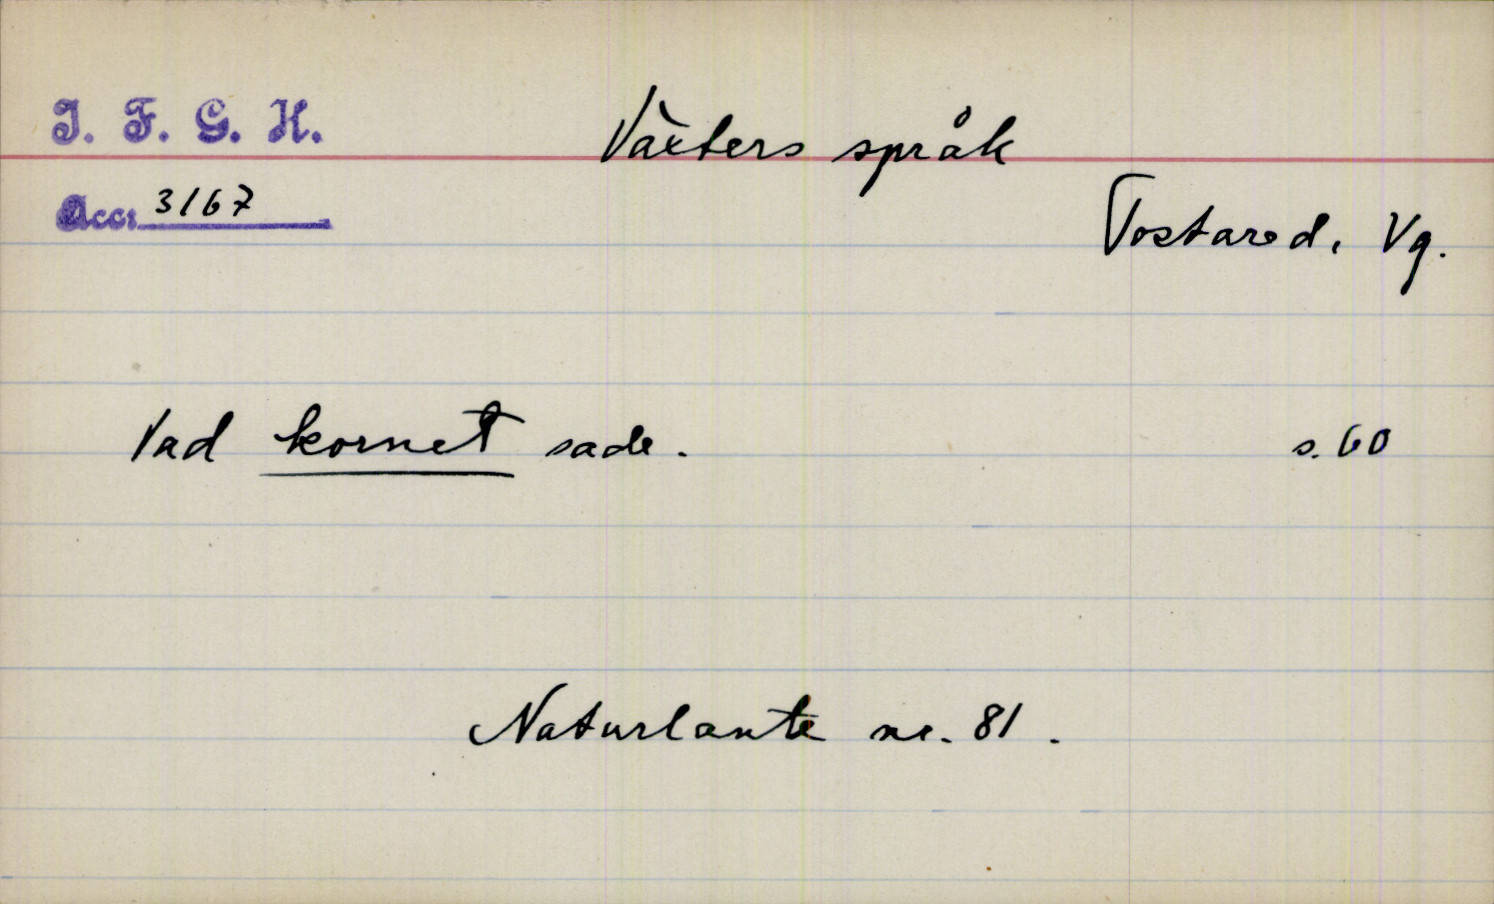 I. F. G. H.
Växters språk
Acc: 3167
Tostared, Vg.
Vad kornet sade. s. 60
Naturlante nr. 81.